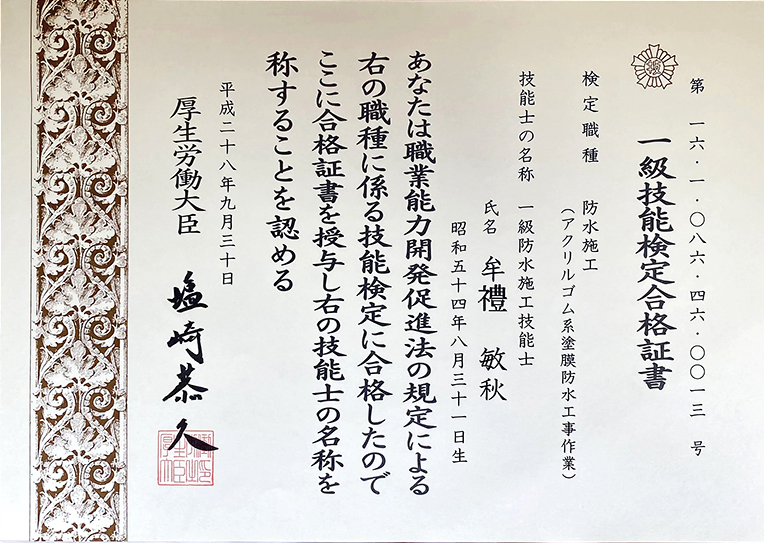 第一六・一・〇八六・四六・〇〇一三号
一級技能検定合格証書
検定職種 防水施工
（アクリルゴム系塗膜防水工事作業）
技能士の名称 一級防水施工技能士
氏名 牟禮 敏秋
昭和五十四年八月三十一日生
あなたは職業能力開発促進法の規定による
右の職種に係る技能検定に合格したので
ここに合格証書を授与し右の技能士の名称を
称することを認める
平成二十八年九月三十日
厚生労働大臣 塩崎恭久